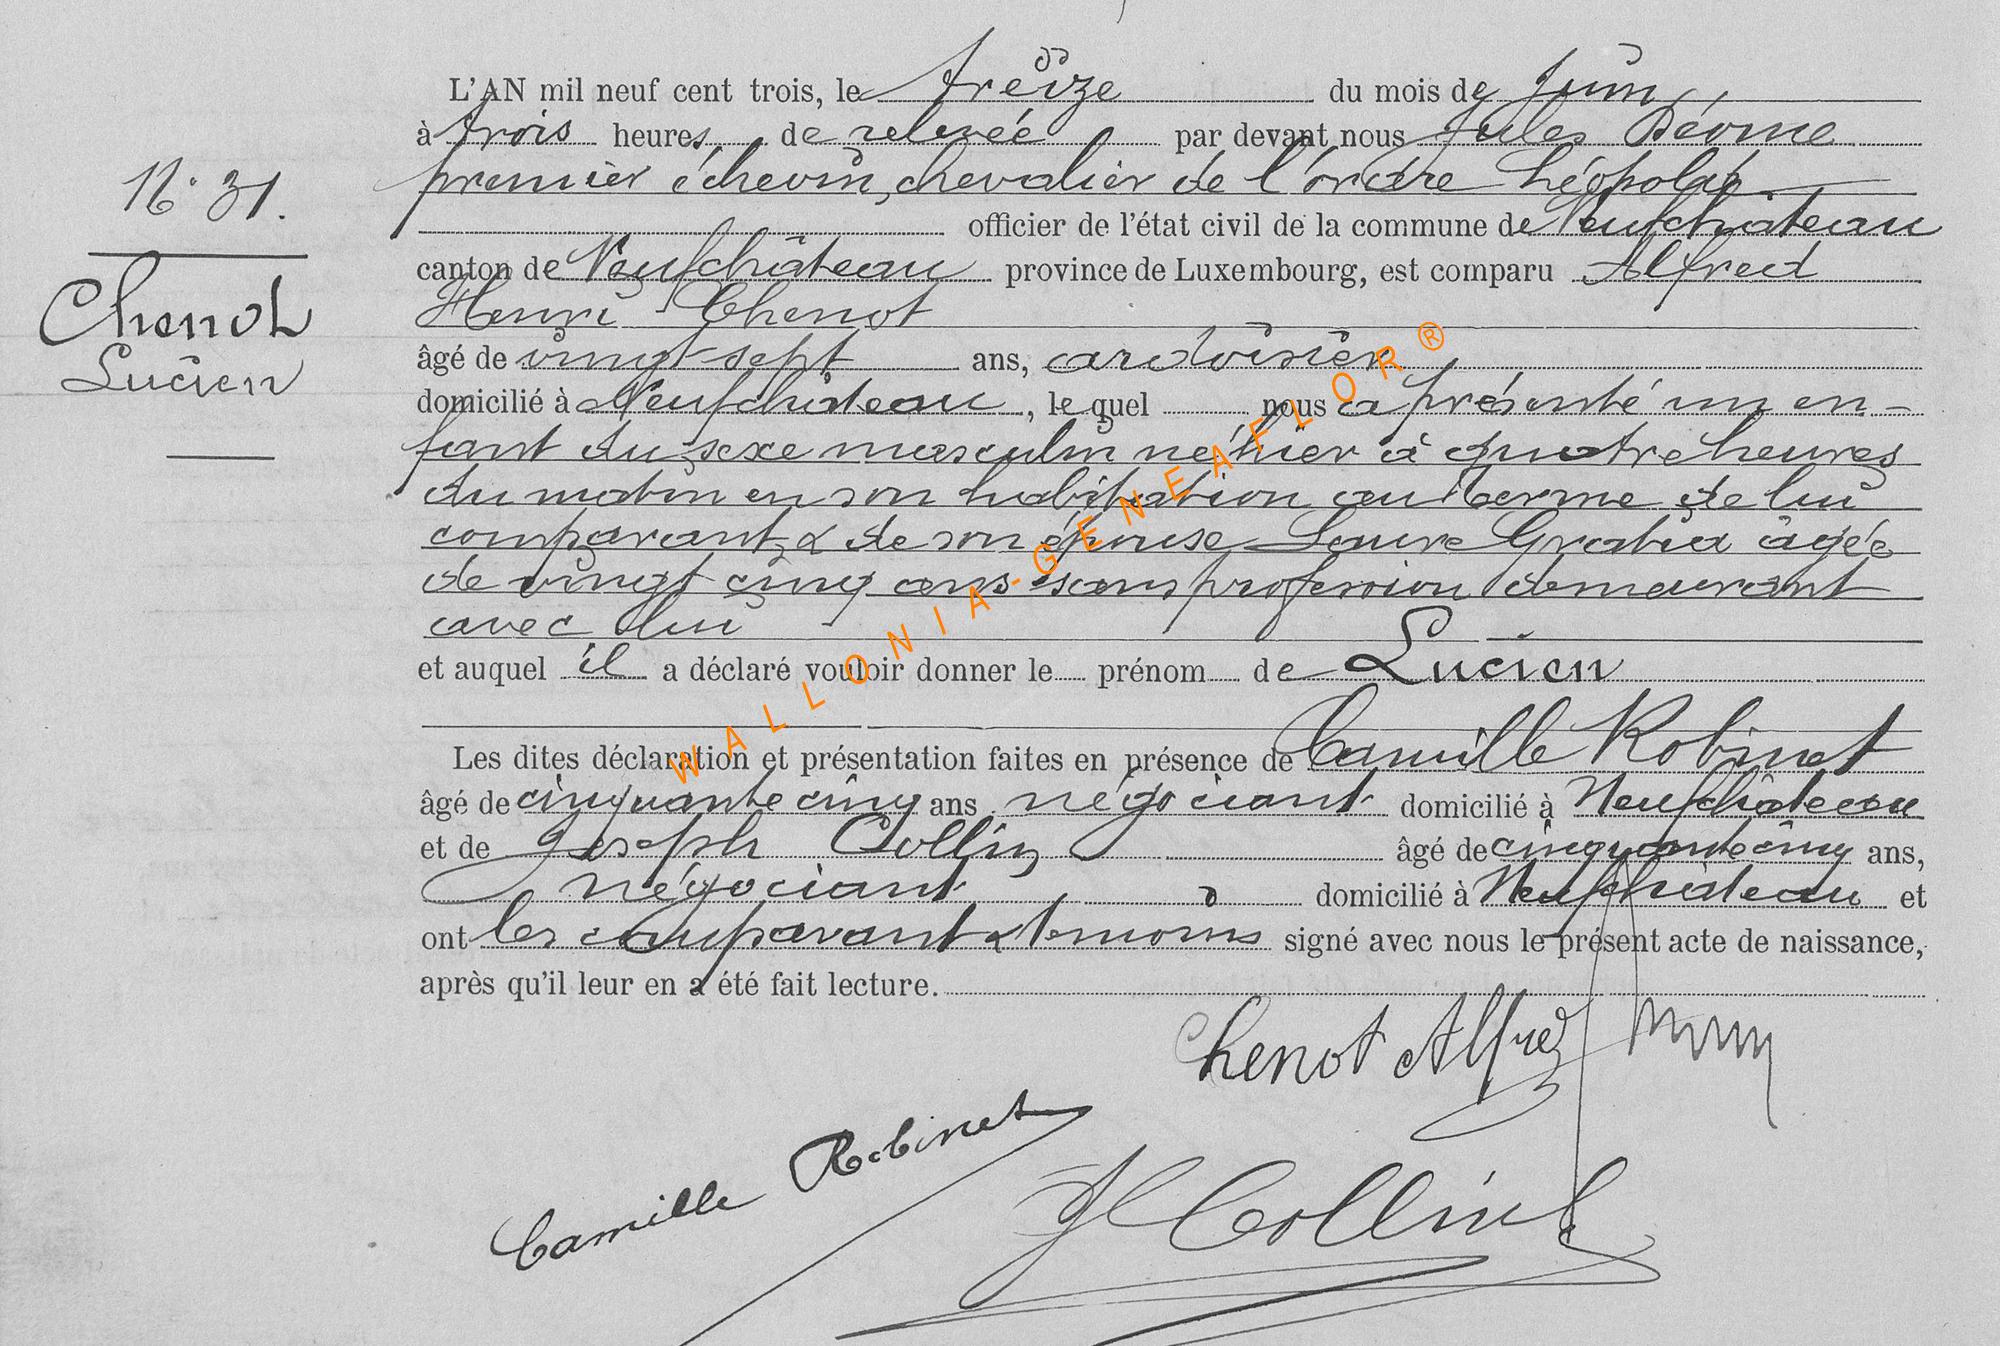 N° 31.
Chenot
Lucien
L'AN mil neuf cent trois, le treize du mois de Juin
à trois heures de relevée par devant nous Jules
premier échevin, chevalier de l'ordre Léopold
officier de l'état civil de la commune de Neufchâteau
canton de Neufchâteau province de Luxembourg, est comparu Alfred
Henri Chenot
âgé de vingt-sept ans, ardoisier
domicilié à Neufchâteau, lequel nous a présenté un en-
fant du sexe masculin né hier à quatre heures
du matin en son habitation au Terme de lui
comparant & de son épouse Laure Gratia âgée
de vingt cinq ans sans profession demeurant
avec lui
et auquel il a déclaré vouloir donner le prénom de Lucien
Les dites déclaration et présentation faites en présence de Camille Robinet
âgé de cinquante cinq ans négociant domicilié à Neufchâteau
et de Joseph Collin âgé de cinquante cinq ans,
négociant domicilié à Neufchâteau et
ont les comparant & témoins signé avec nous le présent acte de naissance,
après qu'il leur en a été fait lecture.
Chenot Alfred
Camille Robinet
J Collin
WALLONIA-GENEAFLOR®